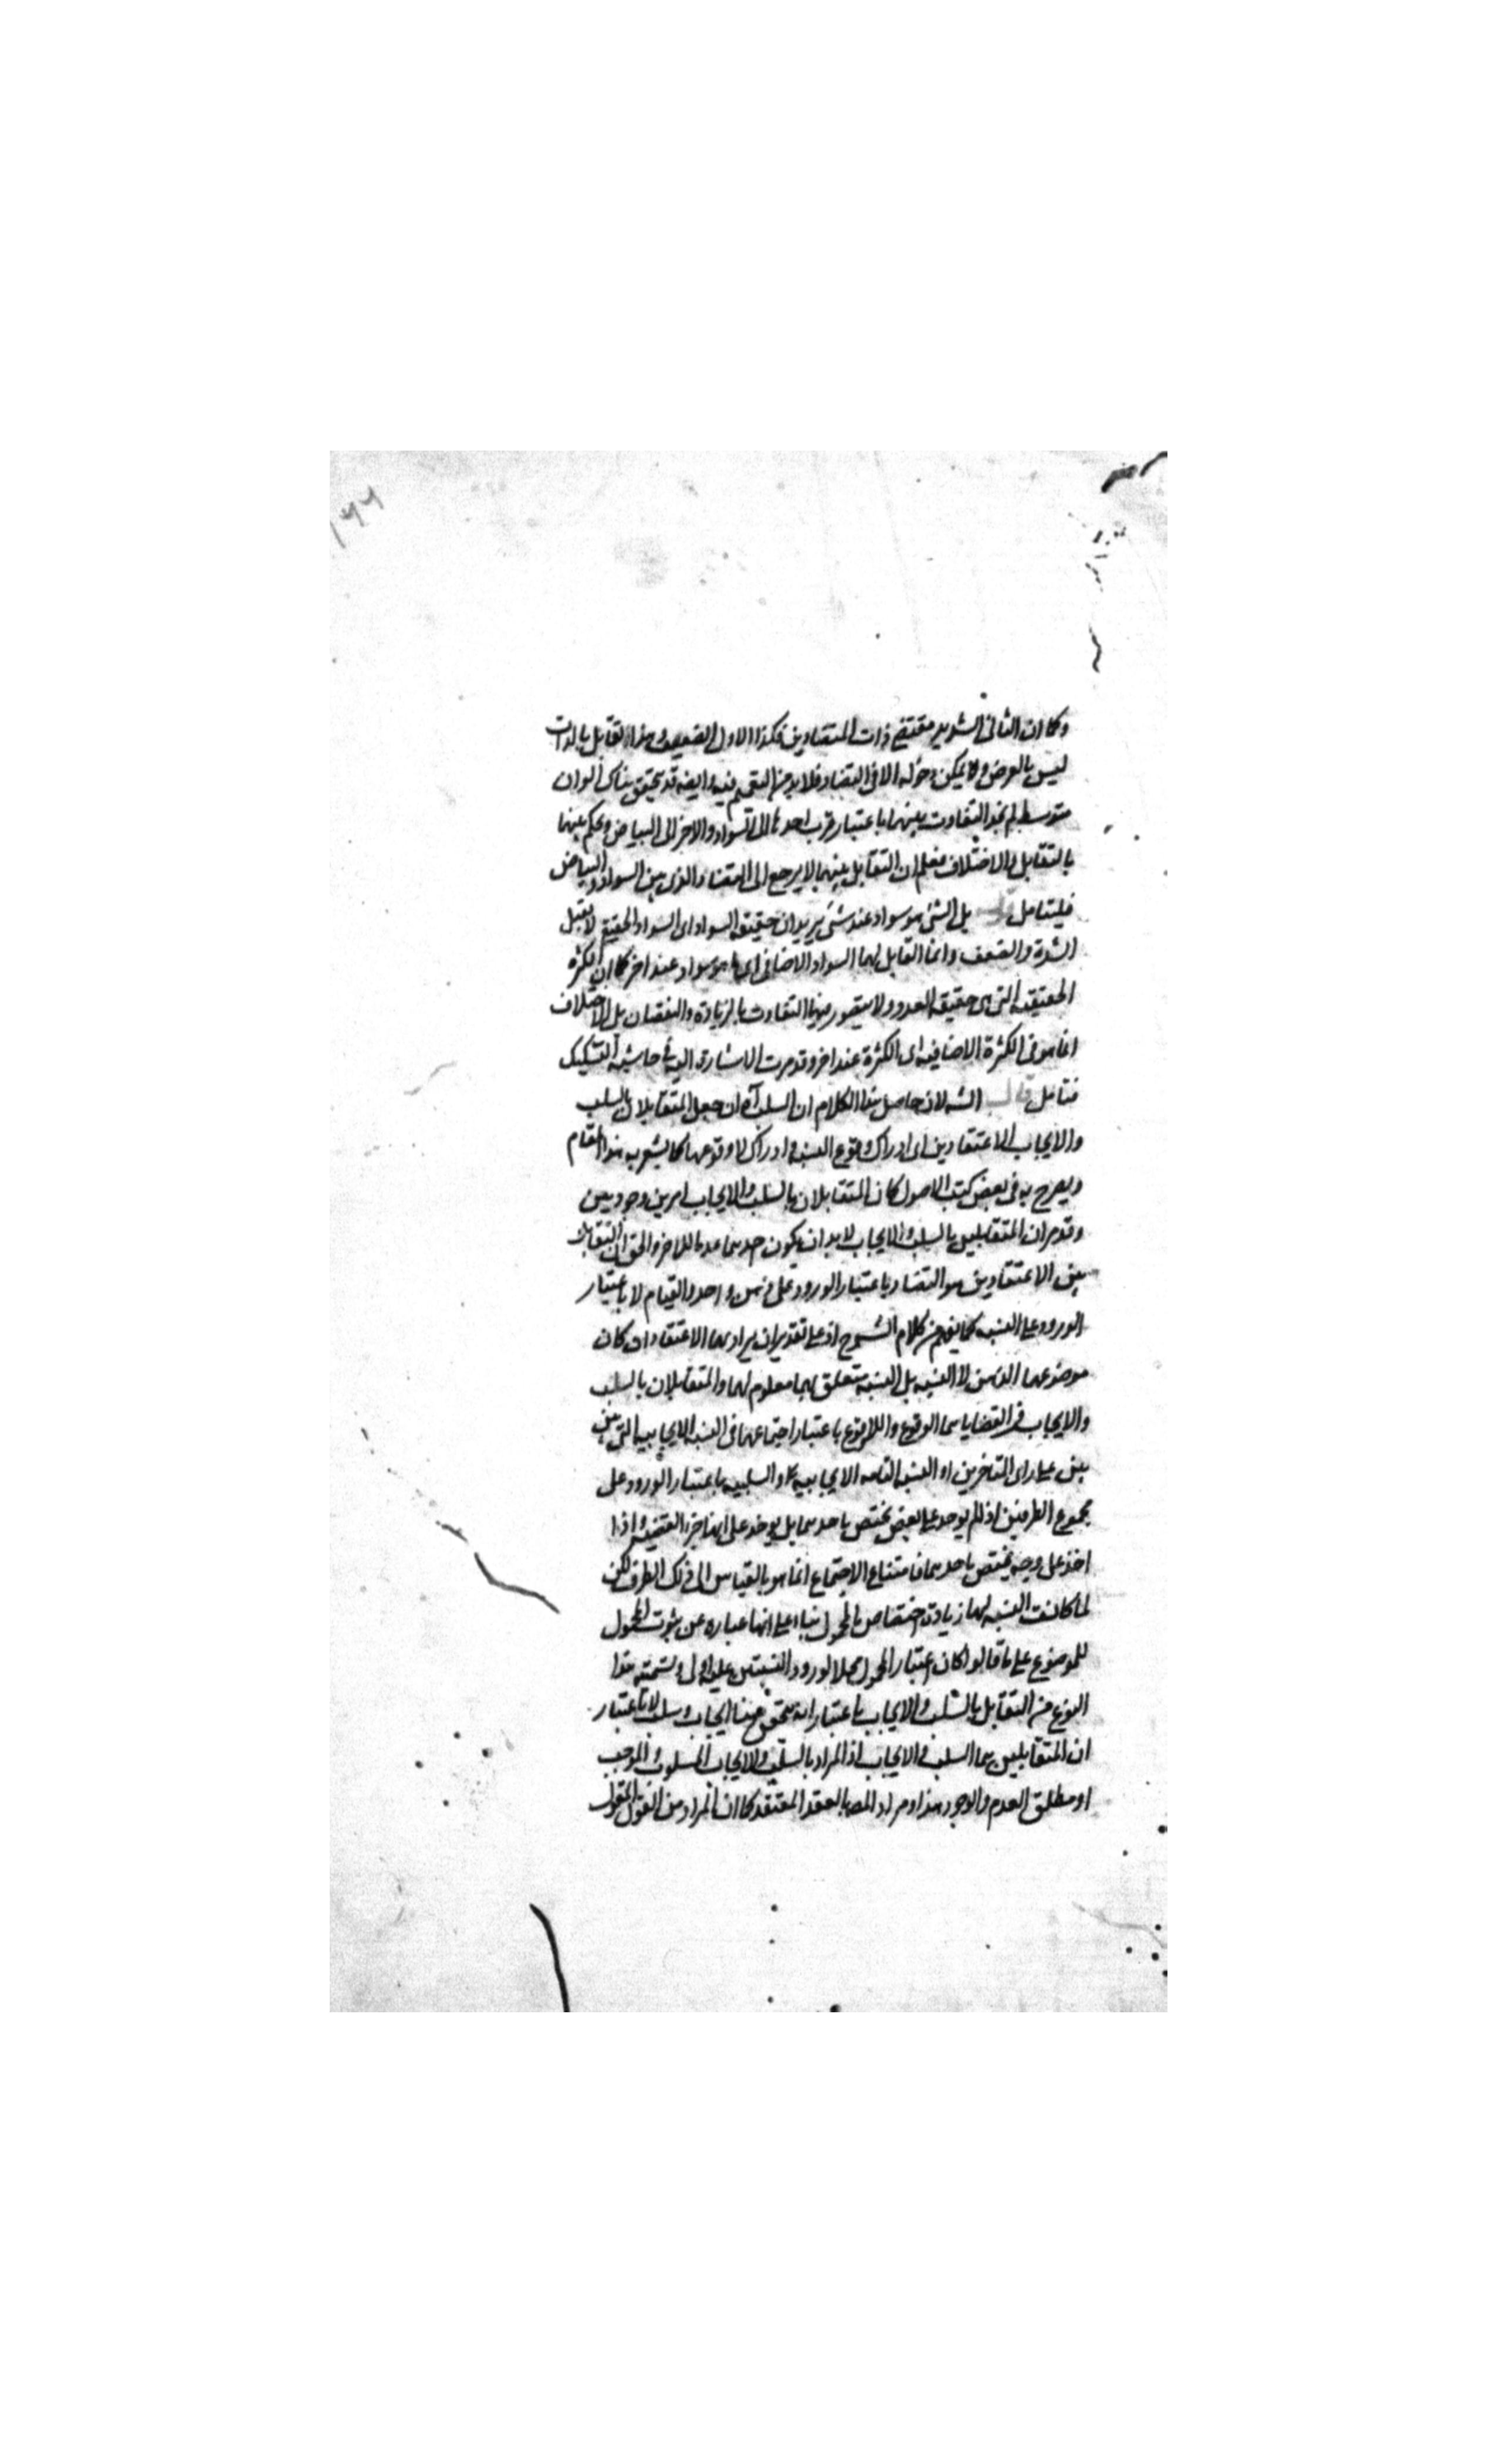 وكما ان التنافي الشديد مقتضى ذات المتضادين فكذا الاول الضعيف وهذا التقابل بالذات
ليس بالعرض ولا يمكن دخوله الا في التضاد فلا بد من التعميم فيه وايضه قد يتحقق هناك الوان
متوسط لم نجد التفاوت بينهما باعتبار قرب احدهما الى السواد والاخر الى البياض ويحكم بينهما
بالتقابل والاختلاف فعلم ان التقابل بينهما لا يرجع الى التضاد الذي بين السواد والبياض
فليتامل قال بل الشئ هو سواد عند شئ يريد ان حقيقة السواد اى السواد الحقيقي لا يقبل
الشدة والضعف وانما القابل لهما السواد الاضافى اى ما هو سواد عند اخر كما ان الكثرة
الحقيقية التى هى حقيقة العدد ولا يتصور فيها التفاوت بالزيادة والنقصان بل الاختلاف
انما هو فى الكثرة الاضافية اى الكثرة عند اخر وقد مرت الاشارة اليه فى حاشية التشكيك
فتامل قال الشه لان حاصل هذا الكلام ان السلب آه ان جعل المتقابلان بالسلب
والايجاب الاعتقادين اى ادراك وقوع النسبة وادراك لا وقوعها كما يشعر به هذا المقام
ويصرح به فى بعض كتب الاصول كان المتقابلان بالسلب والايجاب امرين وجوديين
وقد مر ان المتقابلين بالسلب والايجاب لا بد ان يكون احدهما عدما للاخر والحق ان التقابل
بين الاعتقادين هو التضاد باعتبار الورود على ذهن واحد والقيام لا باعتبار
الورود على النسبة كما يفهم من كلام الشرح اذ على تقدير ان يراد بهما الاعتقادان كان
موضوعهما الذهن لا النسبة بل النسبة متعلق بهما معلوم لهما والمتقابلان بالسلب
والايجاب فى القضايا هما الوقوع واللاوقوع باعتبار اجتماعهما فى النسبة الايجابية التى بين
بين على راى المتاخرين او النسبة التامة الايجابية والسلبية باعتبار الورود على
مجموع الطرفين اذ لم يوجد على بعض يختص باحدهما بل يوخذ على انها جزء القضيتين اذا
اخذ على وجه يختص باحدهما فامتناع الاجتماع انما هو بالقياس الى ذلك الطرف لكن
لما كانت النسبة لها زيادة اختصاص بالمحمول بناء على انها عبارة عن ثبوت المحمول
للموضوع على ما قالوا كان اعتبار المحمول محلا لورود النسبتين عليه اولى وتسمية هذا
النوع من التقابل بالسلب والايجاب باعتبار انه يتحقق هنا ايجاب وسلب لا باعتبار
ان المتقابلين هما السلب والايجاب اذ المراد بالسلب والايجاب المسلوب والموجب
او مطلق العدم والوجود هذا ومراد المصه بالعقد المعتقد كما ان المراد من القول المقول